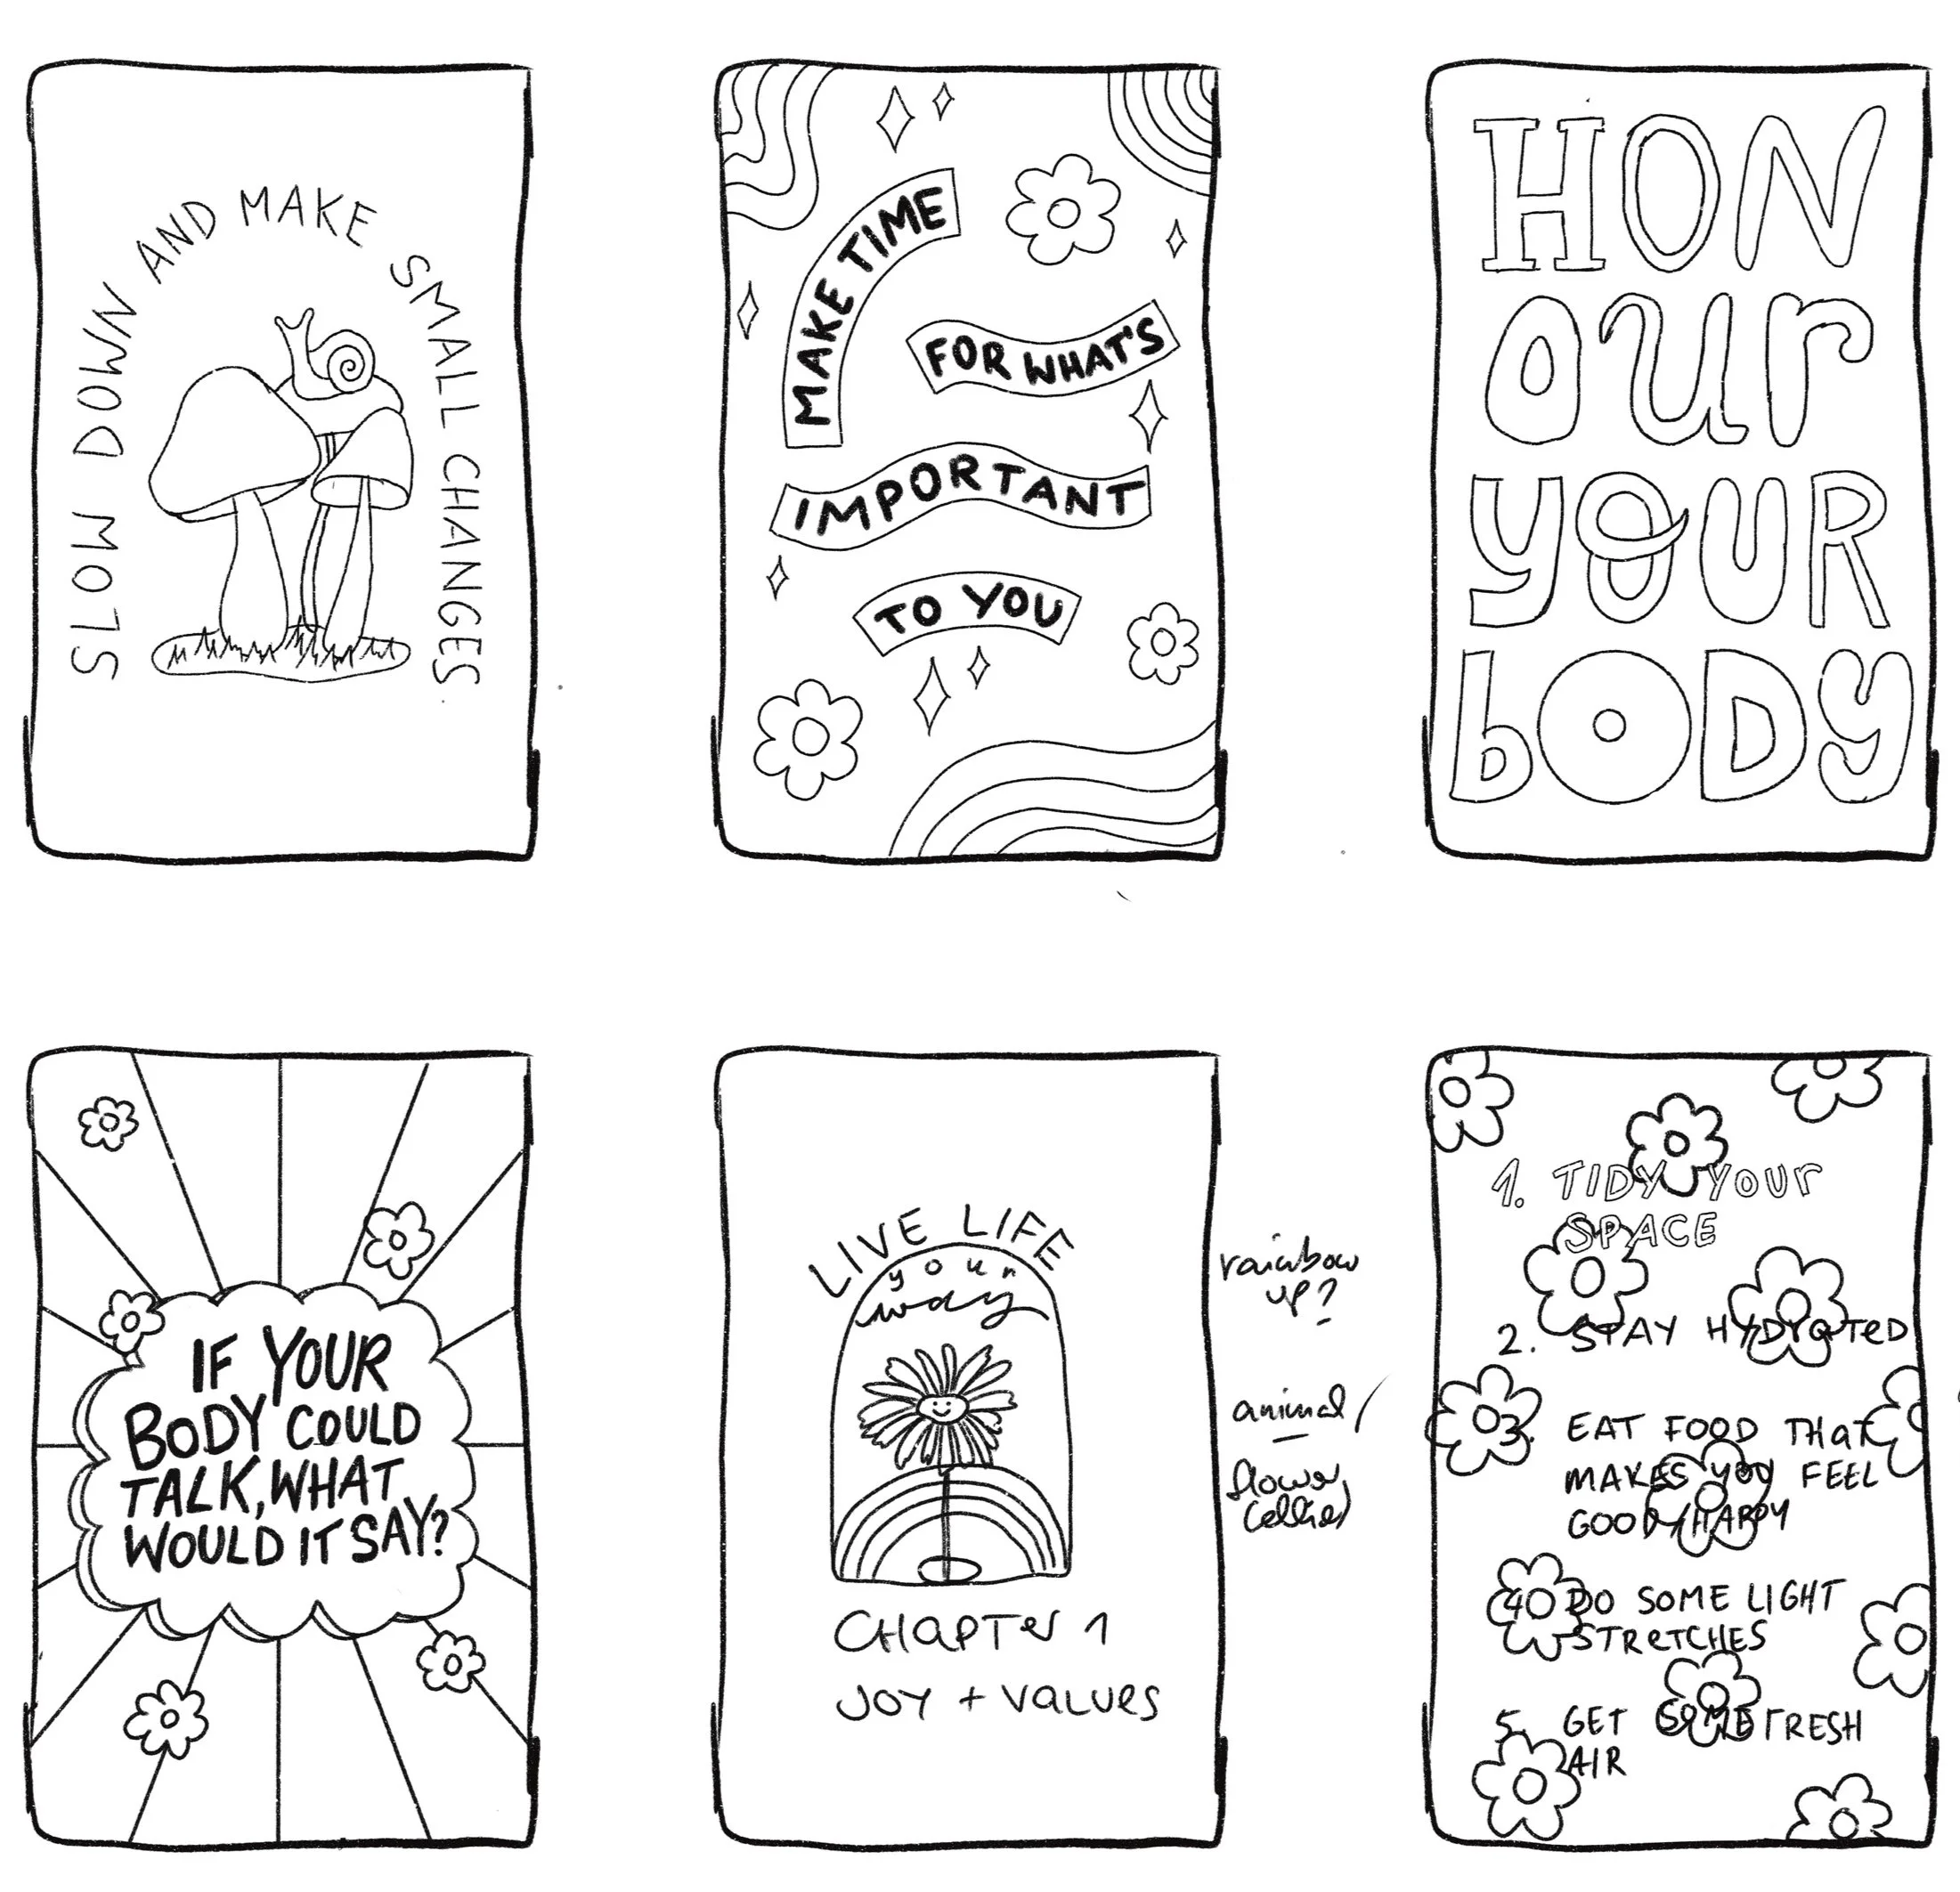 SLOW DOWN AND MAKE SMALL CHANGES
MAKE TIME
FOR WHAT'S
IMPORTANT
TO YOU
HON
our
YOUR
bODY
IF YOUR
BODY COULD
TALK, WHAT
WOULD IT SAY?
LIVE LIFE
your
way
CHAPTER 1
JOY + VALUES
rainbow
up?
animal/
flower
1. TIDY YOUR
SPACE
2. STAY HYDRATED
3. EAT FOOD THAT
MAKES YOU FEEL
GOOD/HAPPY
4. DO SOME LIGHT
STRETCHES
5. GET SOME FRESH
AIR